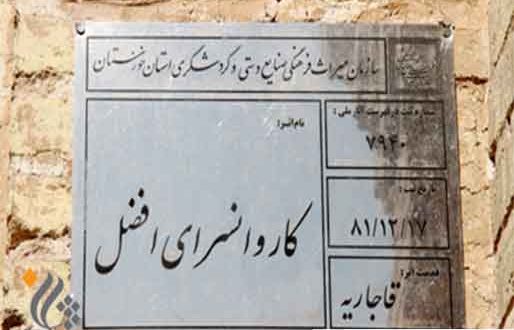 سازمان میراث فرهنگی، صنایع دستی و گردشگری استان خوزستان
شماره ثبت در فهرست آثار ملی:
۷۹۴۰
تاریخ ثبت:
۸۱/۱۲/۱۷
قدمت اثر:
قاجاریه
نام اثر:
کاروانسرای افضل